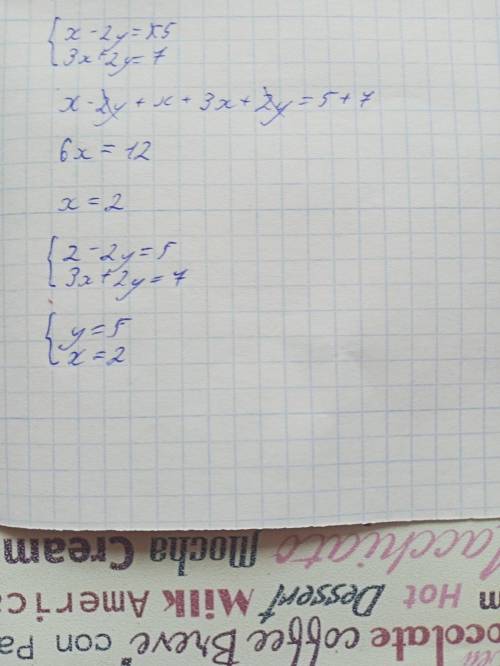 x - 2y = 5
3x + 2y = 7
x - 2y + x + 3x + 2y = 5 + 7
6x = 12
x = 2
2 - 2y = 5
3x + 2y = 7
y = 5
x = 2
acchiato Mocha Cream
m Hot Dessert Milk America
ocolate coffee Breve con Pa